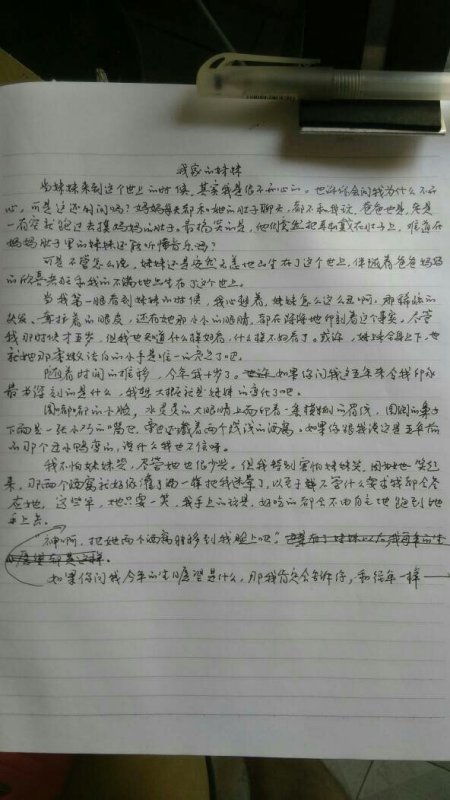 我家的妹妹
当妹妹来到这个世上的时候，其实我是很不开心的。也许你会问我为什么不开
心，可是这还用问吗？妈妈每天都和她的肚子聊天，都不和我说，爸爸也是，老是
一有空就跑过去摸妈妈的肚子。最搞笑的是，他们竟然把耳机戴在肚子上，难道在
妈妈肚子里的妹妹还能听懂音乐吗？
可是不管怎么说，妹妹还是安然无恙地出生在了这个世上，伴随着爸爸妈妈
的欣喜我的不满地出生在了这个世上。
当我第一眼看到妹妹的时候，我心想着，妹妹怎么这么丑啊，那稀疏的
头发，耷拉着的眼皮，还有她那小小的眼睛，都在深深地印刻着这个事实。尽管
我那时候才五岁，但我也知道什么样好看，什么样不好看了。或许，妹妹全身上下，也
就她那李嫩洁白的小手是唯一的亮点了吧。
随着时间的推移，今年我十岁了。如果你问我这五年来令我印象
最为深刻的是什么，我想大概就是妹妹的变化了吧。
圆嘟嘟的小脸，水灵灵的大眼睛上面印着一条模糊的眉线，圆圆的鼻子
下面是一张小巧的嘴巴，旁边还藏着两个浅浅的酒窝。如果你跟我说这是五年前
的那个丑小鸭变的，说什么我也不信呀。
我不怕妹妹哭，尽管她也很少哭。但我特别害怕妹妹笑，因为她一笑起
来，那两个酒窝就好像灌了酒一样把我迷晕了，以至于鲜不管什么零食我都会舍
在她，这些年，她只要一笑，我手上的玩具，好吃的都会不由自主地跑到她
手上去。
神啊，把她两个酒窝转移到我脸上吧！
如果你问我今年的生日愿望是什么，那我肯定会告诉你，和往年一样——